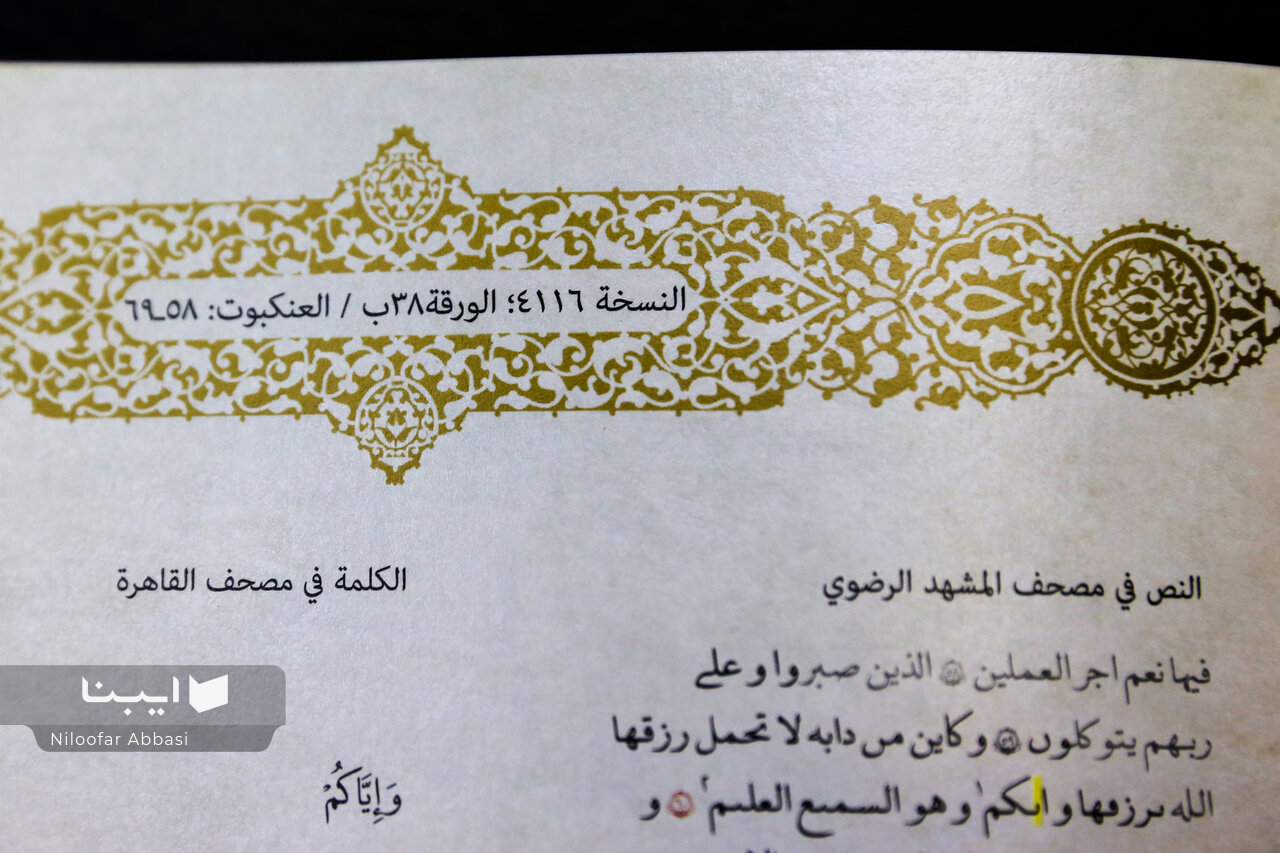 النسخة ٤١١٦؛ الورقة٣٨ب / العنكبوت: ٥٨ـ٦٩
النص في مصحف المشهد الرضوي
الكلمة في مصحف القاهرة
فيها نعم اجر العملين ۵۸ الذين صبروا و على
ربهم يتوكلون ۵۹ و كاين من دابه لا تحمل رزقها
الله يرزقها و اىكم و هو السميع العليم ۶۰ و
وَإِيَّاكُمْ
ایبنا
Niloofar Abbasi